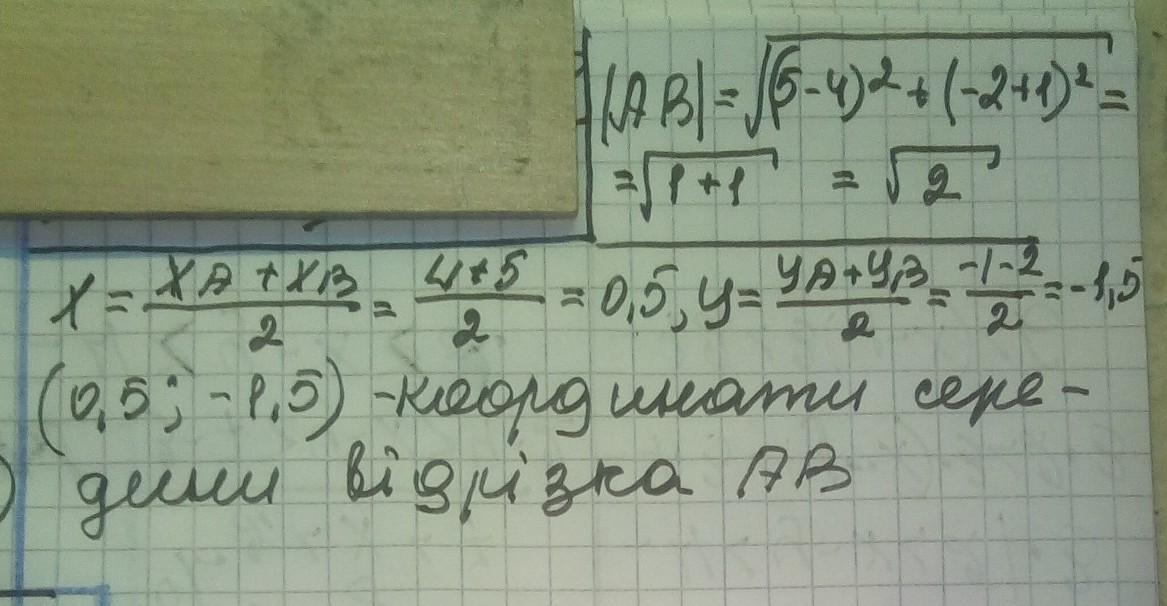 |AB| = √(5-4)² + (-2+1)² =
= √1+1 = √2
X = XA + XB / 2 = 4+5 / 2 = 0,5, y = yA + yB / 2 = -1-2 / 2 = -1,5
(0,5; -1,5) - координати сере-
дини відрізка AB